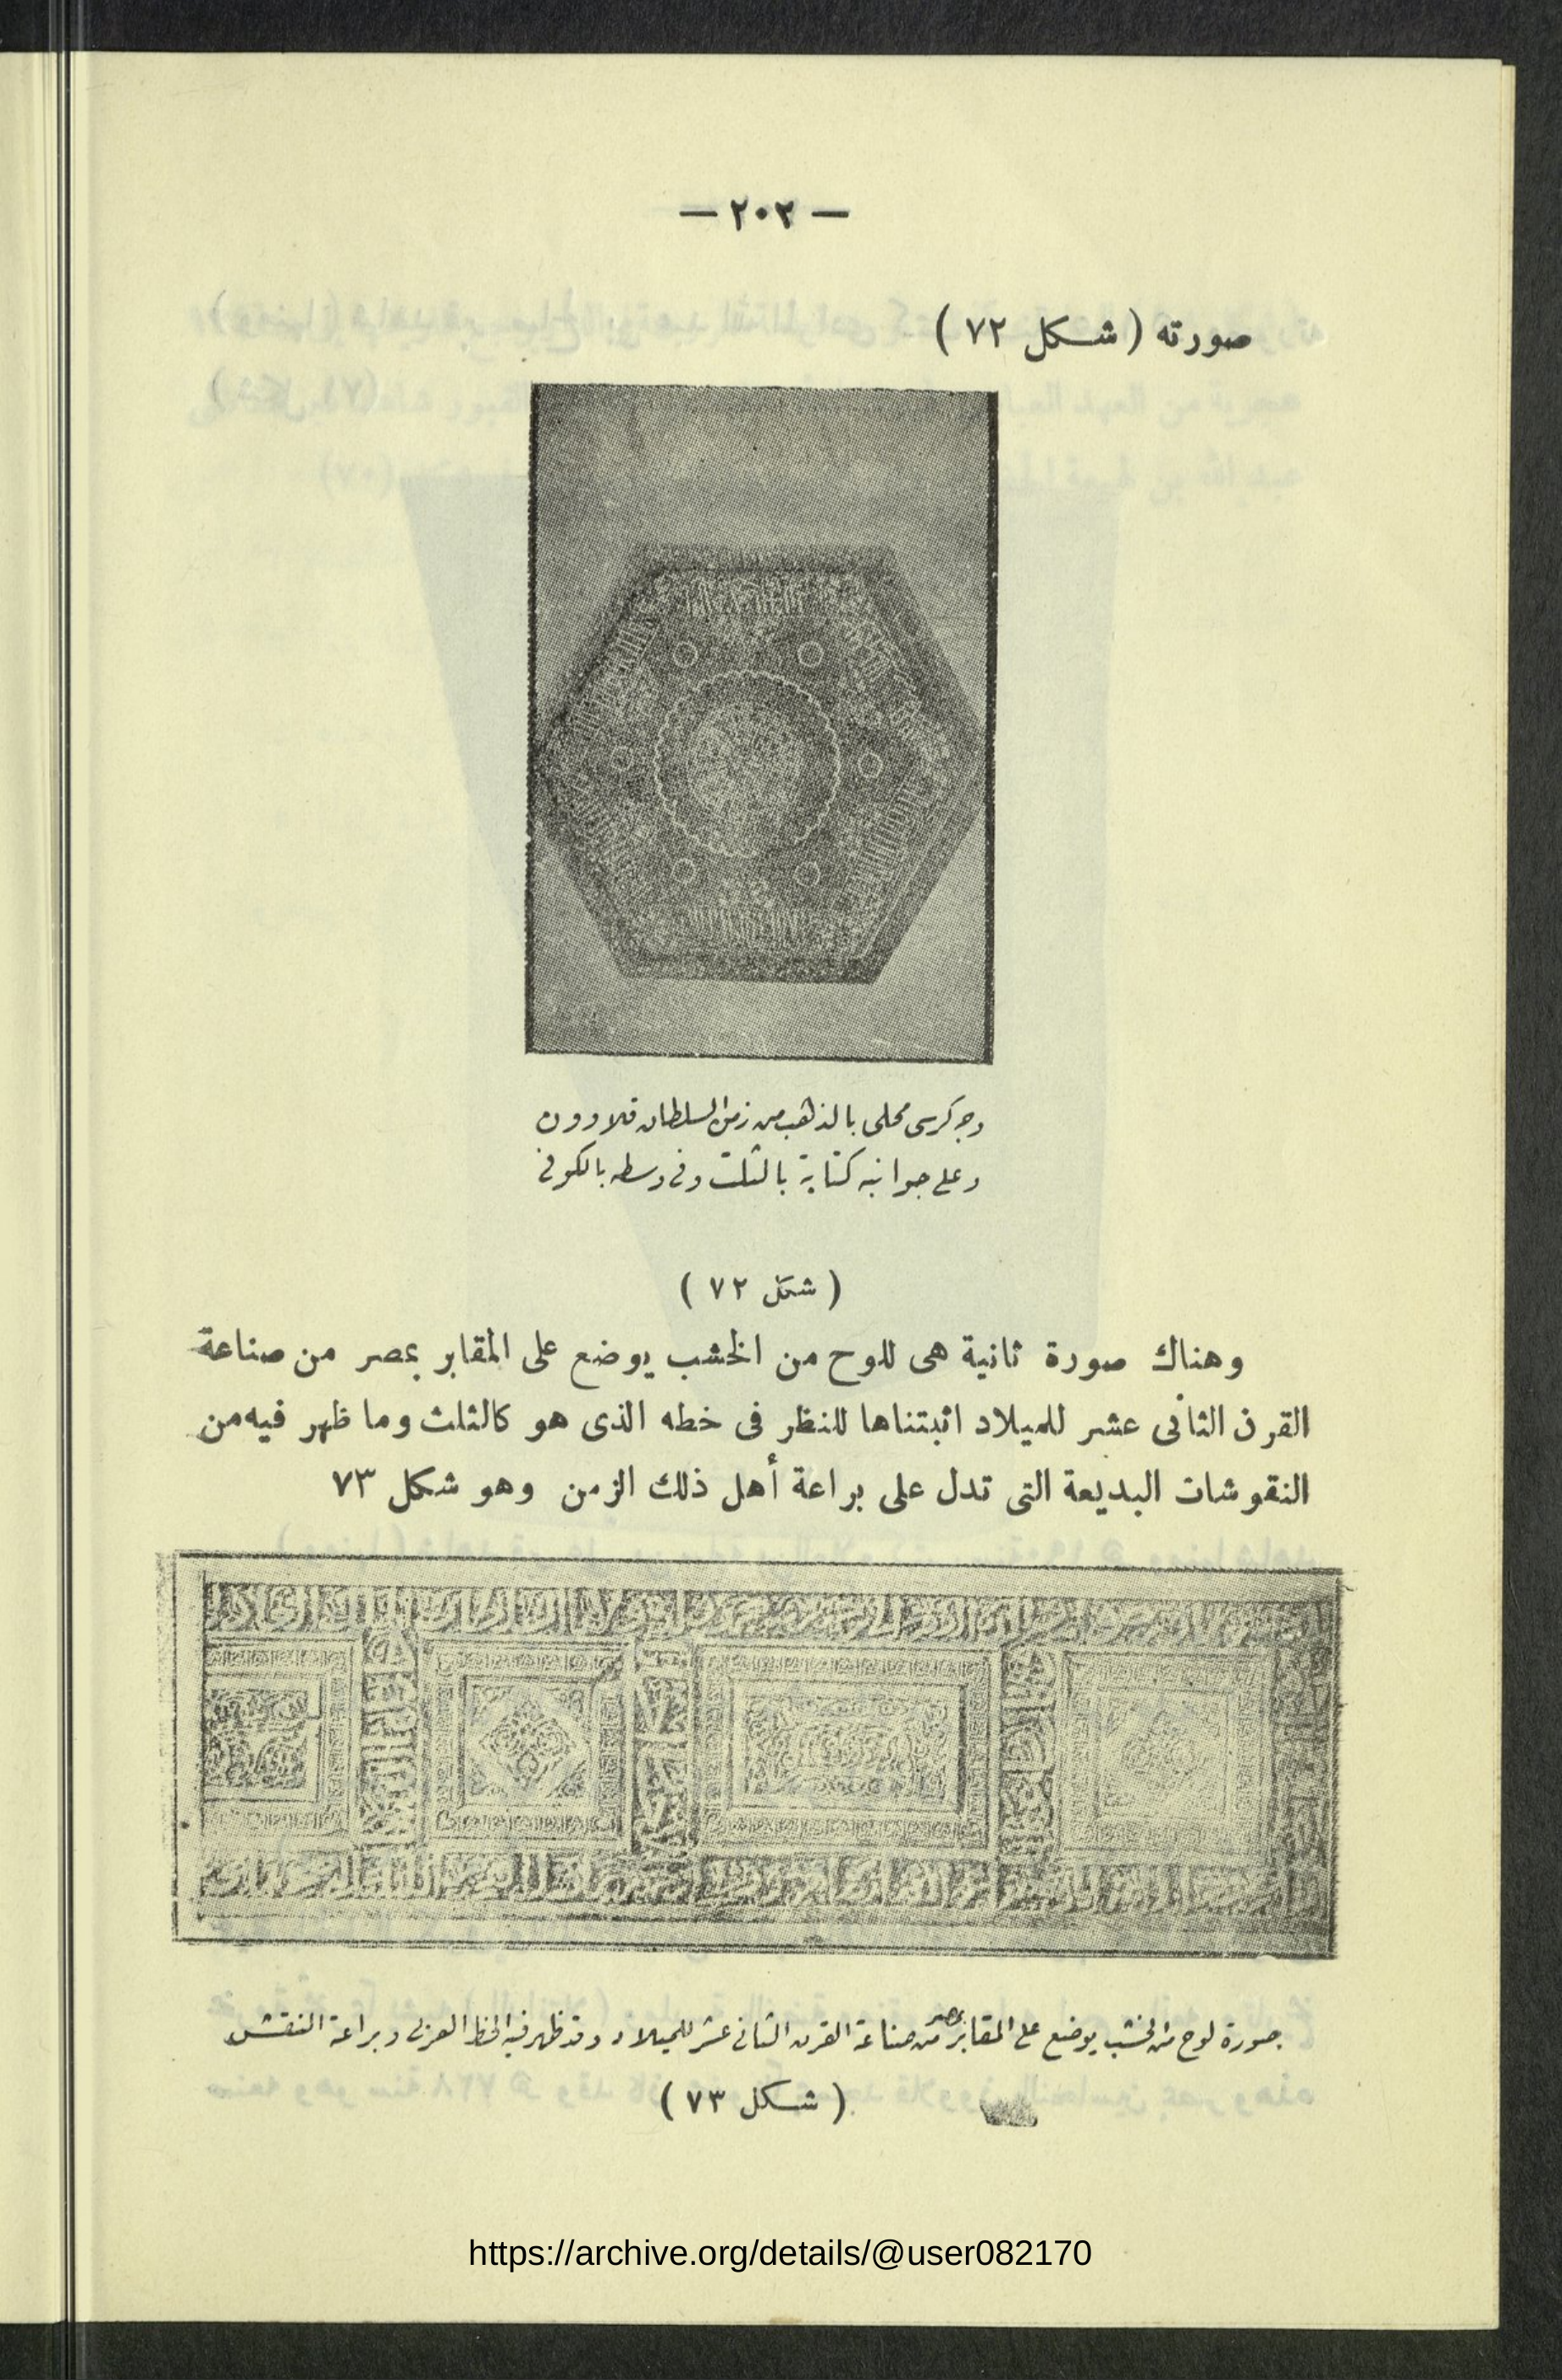 — ٢٠٢ —
صورته ( شكل ٧٢ )
وجه كرسى محلى بالذهب من زمن السلطان قلاوون
وعلى جوانبه كتابة بالثلث وفى وسطه بالكوفى
( شكل ٧٢ )
وهناك صورة ثانية هى للوح من الخشب يوضع على المقابر بمصر من صناعة
القرن الثانى عشر للميلاد اثبتناها للنظر فى خطه الذى هو كالثلث وما ظهر فيه من
النقوشات البديعة التى تدل على براعة أهل ذلك الزمن وهو شكل ٧٣
صورة لوح من الخشب يوضع على المقابر بمصر من صناعة القرن الثانى عشر للميلاد وقد ظهر فيه الخط العربى وبراعة النقش
( شكل ٧٣ )
https://archive.org/details/@user082170